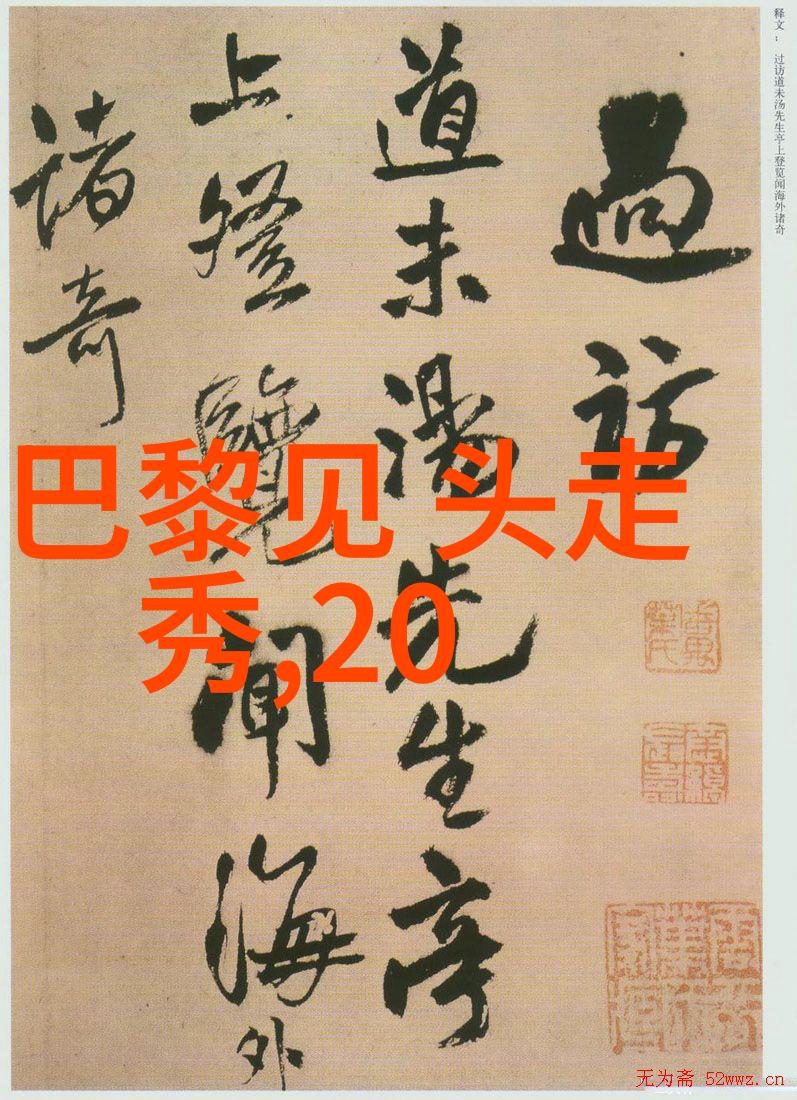 释文： 过访道未汤先生亭上登览闻海外诸奇
過訪
道未湯先生亭
上登覽聞海外
諸奇
巴黎见 头走
秀,20
无为斋 52wwz.cn